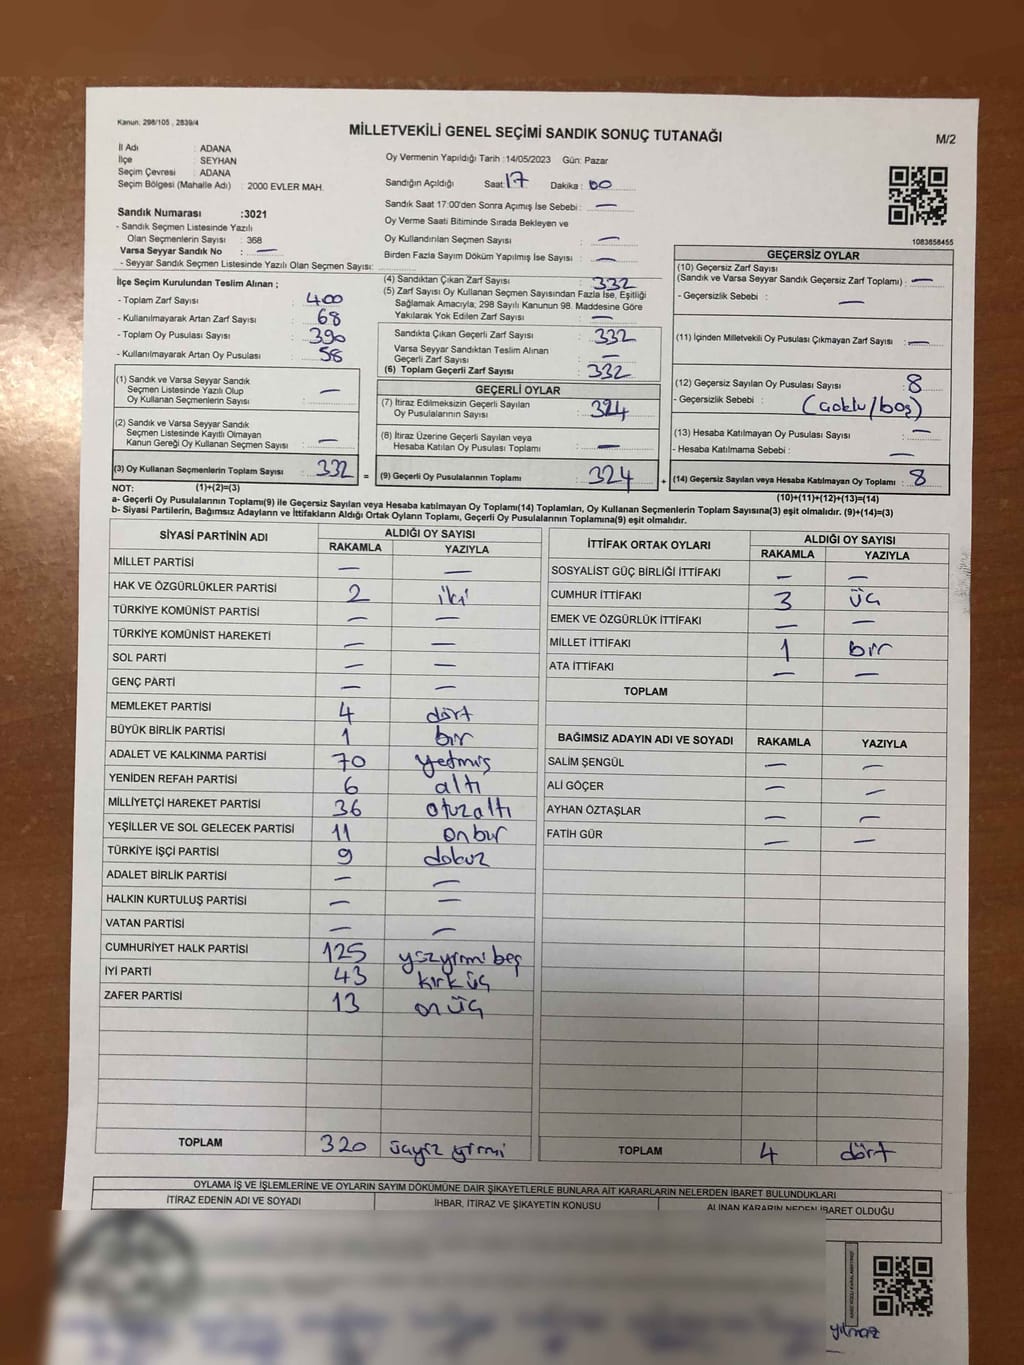 Kanun: 298/105 , 2839/4
MİLLETVEKİLİ GENEL SEÇİMİ SANDIK SONUÇ TUTANAĞI
M/2
İl Adı : ADANA
İlçe : SEYHAN
Seçim Çevresi : ADANA
Seçim Bölgesi (Mahalle Adı) : 2000 EVLER MAH.
Sandık Numarası :3021
- Sandık Seçmen Listesinde Yazılı
Olan Seçmenlerin Sayısı : 368
Varsa Seyyar Sandık No : —
- Seyyar Sandık Seçmen Listesinde Yazılı Olan Seçmen Sayısı:
Oy Vermenin Yapıldığı Tarih :14/05/2023 Gün: Pazar
Sandığın Açıldığı Saat: 17 Dakika : 00
Sandık Saat 17:00'den Sonra Açımış İse Sebebi : —
Oy Verme Saati Bitiminde Sırada Bekleyen ve
Oy Kullandırılan Seçmen Sayısı : —
Birden Fazla Sayım Döküm Yapılmış İse Sayısı : —
1083858455
İlçe Seçim Kurulundan Teslim Alınan ;
- Toplam Zarf Sayısı : 400
- Kullanılmayarak Artan Zarf Sayısı : 68
- Toplam Oy Pusulası Sayısı : 390
- Kullanılmayarak Artan Oy Pusulası : 58
(1) Sandık ve Varsa Seyyar Sandık
Seçmen Listesinde Yazılı Olup
Oy Kullanan Seçmenlerin Sayısı : —
(2) Sandık ve Varsa Seyyar Sandık
Seçmen Listesinde Kayıtlı Olmayan
Kanun Gereği Oy Kullanan Seçmen Sayısı : —
(3) Oy Kullanan Seçmenlerin Toplam Sayısı : 332 =
(4) Sandıktan Çıkan Zarf Sayısı : 332
(5) Zarf Sayısı Oy Kullanan Seçmen Sayısından Fazla İse, Eşitliği
Sağlamak Amacıyla; 298 Sayılı Kanunun 98. Maddesine Göre
Yakılarak Yok Edilen Zarf Sayısı : —
Sandıkta Çıkan Geçerli Zarf Sayısı : 332
Varsa Seyyar Sandıktan Teslim Alınan
Geçerli Zarf Sayısı : —
(6) Toplam Geçerli Zarf Sayısı : 332
GEÇERLİ OYLAR
(7) İtiraz Edilmeksizin Geçerli Sayılan
Oy Pusulalarının Sayısı : 324
(8) İtiraz Üzerine Geçerli Sayılan veya
Hesaba Katılan Oy Pusulası Toplamı : —
(9) Geçerli Oy Pusulalarının Toplamı : 324 +
GEÇERSİZ OYLAR
(10) Geçersiz Zarf Sayısı
(Sandık ve Varsa Seyyar Sandık Geçersiz Zarf Toplamı) : —
- Geçersizlik Sebebi : —
(11) İçinden Milletvekili Oy Pusulası Çıkmayan Zarf Sayısı : —
(12) Geçersiz Sayılan Oy Pusulası Sayısı : 8
- Geçersizlik Sebebi : (Çoklu/boş)
(13) Hesaba Katılmayan Oy Pusulası Sayısı : —
- Hesaba Katılmama Sebebi : —
(14) Geçersiz Sayılan veya Hesaba Katılmayan Oy Toplamı : 8
NOT: (1)+(2)=(3)
(10)+(11)+(12)+(13)=(14)
a- Geçerli Oy Pusulalarının Toplamı(9) ile Geçersiz Sayılan veya Hesaba katılmayan Oy Toplamı(14) Toplamları, Oy Kullanan Seçmenlerin Toplam Sayısına(3) eşit olmalıdır. (9)+(14)=(3)
b- Siyasi Partilerin, Bağımsız Adayların ve İttifakların Aldığı Ortak Oyların Toplamı, Geçerli Oy Pusulalarının Toplamına(9) eşit olmalıdır.
SİYASİ PARTİNİN ADI ALDIĞI OY SAYISI
RAKAMLA YAZIYLA
MİLLET PARTİSİ — —
HAK VE ÖZGÜRLÜKLER PARTİSİ 2 iki
TÜRKİYE KOMÜNİST PARTİSİ — —
TÜRKİYE KOMÜNİST HAREKETİ — —
SOL PARTİ — —
GENÇ PARTİ — —
MEMLEKET PARTİSİ 4 dört
BÜYÜK BİRLİK PARTİSİ 1 bir
ADALET VE KALKINMA PARTİSİ 70 yetmiş
YENİDEN REFAH PARTİSİ 6 altı
MİLLİYETÇİ HAREKET PARTİSİ 36 otuzaltı
YEŞİLLER VE SOL GELECEK PARTİSİ 11 onbir
TÜRKİYE İŞÇİ PARTİSİ 9 dokuz
ADALET BİRLİK PARTİSİ — —
HALKIN KURTULUŞ PARTİSİ — —
VATAN PARTİSİ — —
CUMHURİYET HALK PARTİSİ 125 yüzyirmi beş
İYİ PARTİ 43 kırk üç
ZAFER PARTİSİ 13 on üç
TOPLAM 320 üçyüz yirmi
İTTİFAK ORTAK OYLARI ALDIĞI OY SAYISI
RAKAMLA YAZIYLA
SOSYALİST GÜÇ BİRLİĞİ İTTİFAKI — —
CUMHUR İTTİFAKI 3 üç
EMEK VE ÖZGÜRLÜK İTTİFAKI — —
MİLLET İTTİFAKI 1 bir
ATA İTTİFAKI — —
TOPLAM
BAĞIMSIZ ADAYIN ADI VE SOYADI RAKAMLA YAZIYLA
SALİM ŞENGÜL — —
ALİ GÖÇER — —
AYHAN ÖZTAŞLAR — —
FATİH GÜR — —
TOPLAM 4 dört
OYLAMA İŞ VE İŞLEMLERİNE VE OYLARIN SAYIM DÖKÜMÜNE DAİR ŞİKAYETLERLE BUNLARA AİT KARARLARIN NELERDEN İBARET BULUNDUKLARI
İTİRAZ EDENİN ADI VE SOYADI İHBAR, İTİRAZ VE ŞİKAYETİN KONUSU ALINAN KARARIN NEDEN İBARET OLDUĞU
yılmaz